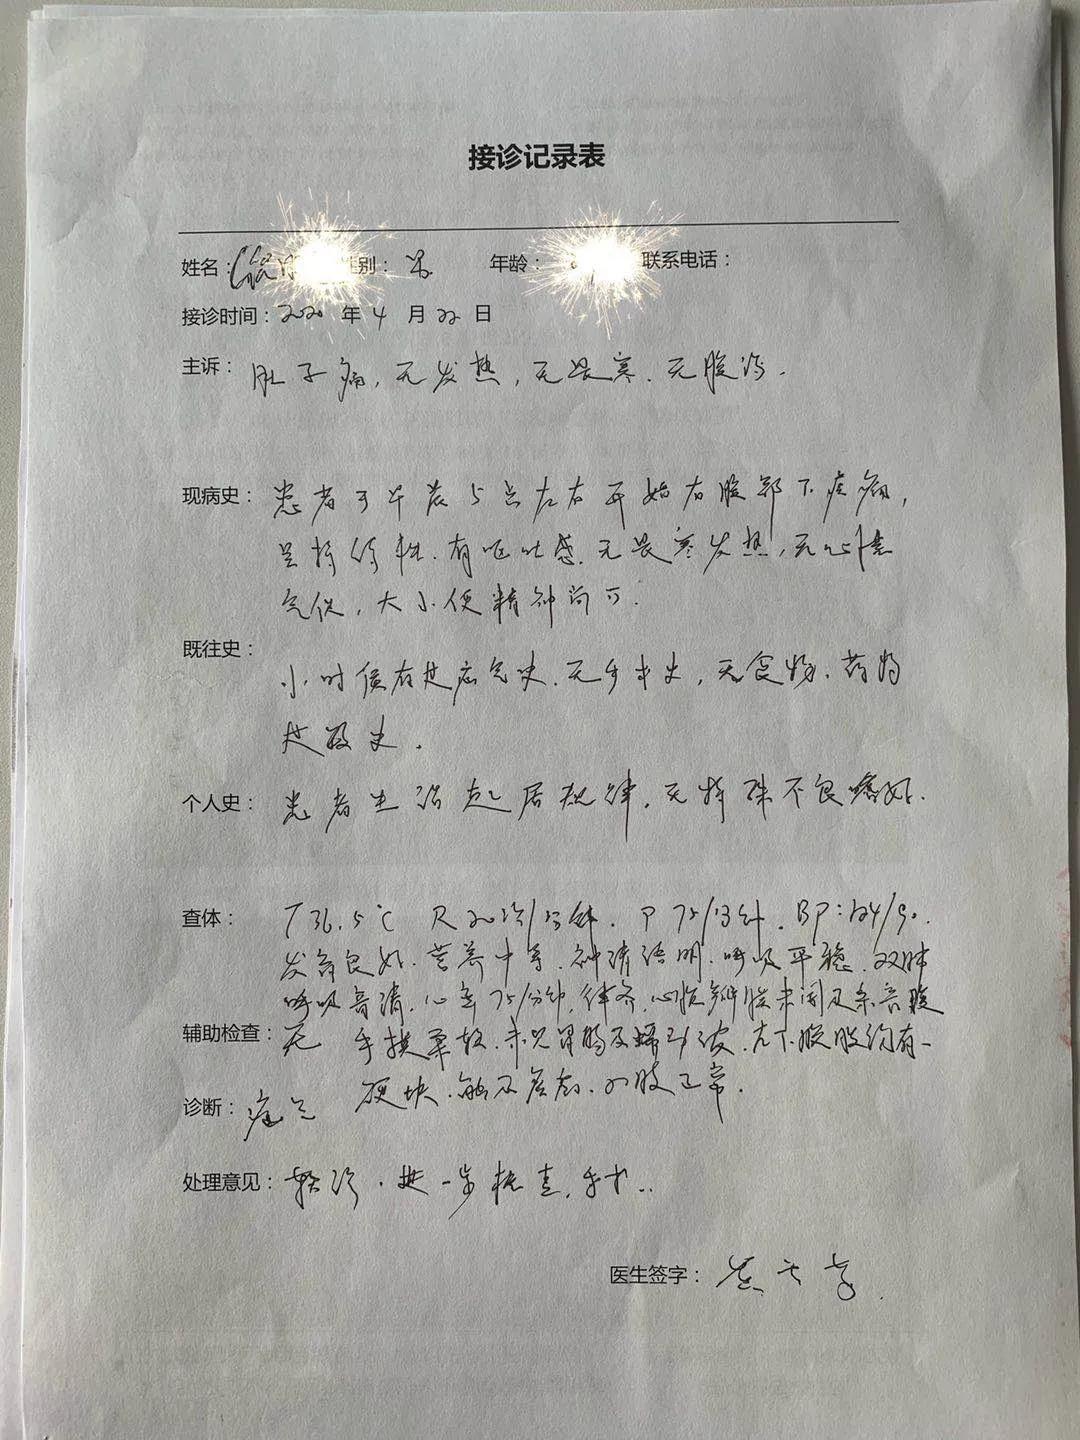 接诊记录表
姓名： 性别：男 年龄： 联系电话：
接诊时间：2020 年 4 月 22 日
主诉：肚子痛，无发热，无畏寒．无腹泻．
现病史：患者于早晨5点左右开始右腹部下疼痛，
呈持续性．有呕吐感．无畏寒发热，无心慌
气促，大小便精神尚可．
既往史：小时候有疝气史．无手术史，无食物．药物
过敏史．
个人史：患者生活起居规律．无特殊不良嗜好．
查体：T 36.5℃ R 20次/分钟．P 75/分钟．BP：124/90．
发育良好．营养中等．神清语明．呼吸平稳．双肺
呼吸音清．心率75/分钟，律齐，心脏瓣膜未闻及杂音腹
辅助检查：无 手拱柔软．未见胃肠及蠕动波．右下腹股沟有一
硬块．触及疼痛．四肢正常．
诊断：疝气
处理意见：转诊．进一步检查，手术..
医生签字：